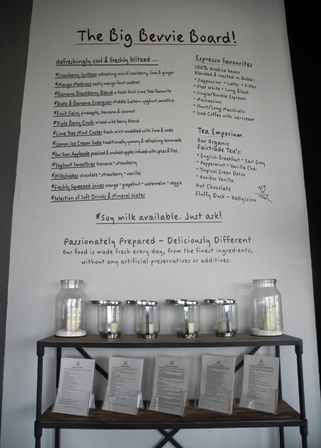 The Big Bevvie Board!
Refreshingly cool & freshly blitzed ...
#Cranberry Spritzer refreshing mix of cranberry, lime & ginger
#Mango Madness zesty mango fruit cocktail
#Banana Blackberry Blend a fresh fruit Lime Tea favourite
#Date & Banana Energizer Middle Eastern yoghurt smoothie
#Fruit Fairy pineapple, banana & coconut
#Triple Berry Crush mixed wild berry blend
#Lime Tree Mint Cooler fresh mint muddled with lime & soda
#Lemon Ice Cream Soda traditionally yummy & refreshing lemonade
poached and mulled apples infused with spices &
#Yoghurt Smoothies banana * strawberry
#Milkshakes chocolate * strawberry * vanilla
#Freshly Squeezed Juices orange * grapefruit * watermelon * veggie
#Selection of Soft Drinks & Mineral Water
Espresso Favourites
100% Arabica beans
blended & roasted in Dubai:
• Cappuccino • Latte • Filter
• Flat White • Long Black
• Single/Double Espresso
• Mochaccino
• Short/Long Macchiato
• Iced Coffee with ice-cream
Tea Emporium
Our Organic
Fairtrade Tea's:
• English Breakfast • Earl Grey
• Peppermint • Vanilla Chai
• Tropical Green Detox
• Rooibos Vanilla
Hot Chocolate
Fluffy Duck - babyccino
#Soy milk available. Just ask!
Passionately Prepared - Deliciously Different
Our food is made fresh every day, from the finest ingredients,
without any artificial preservatives or additives.